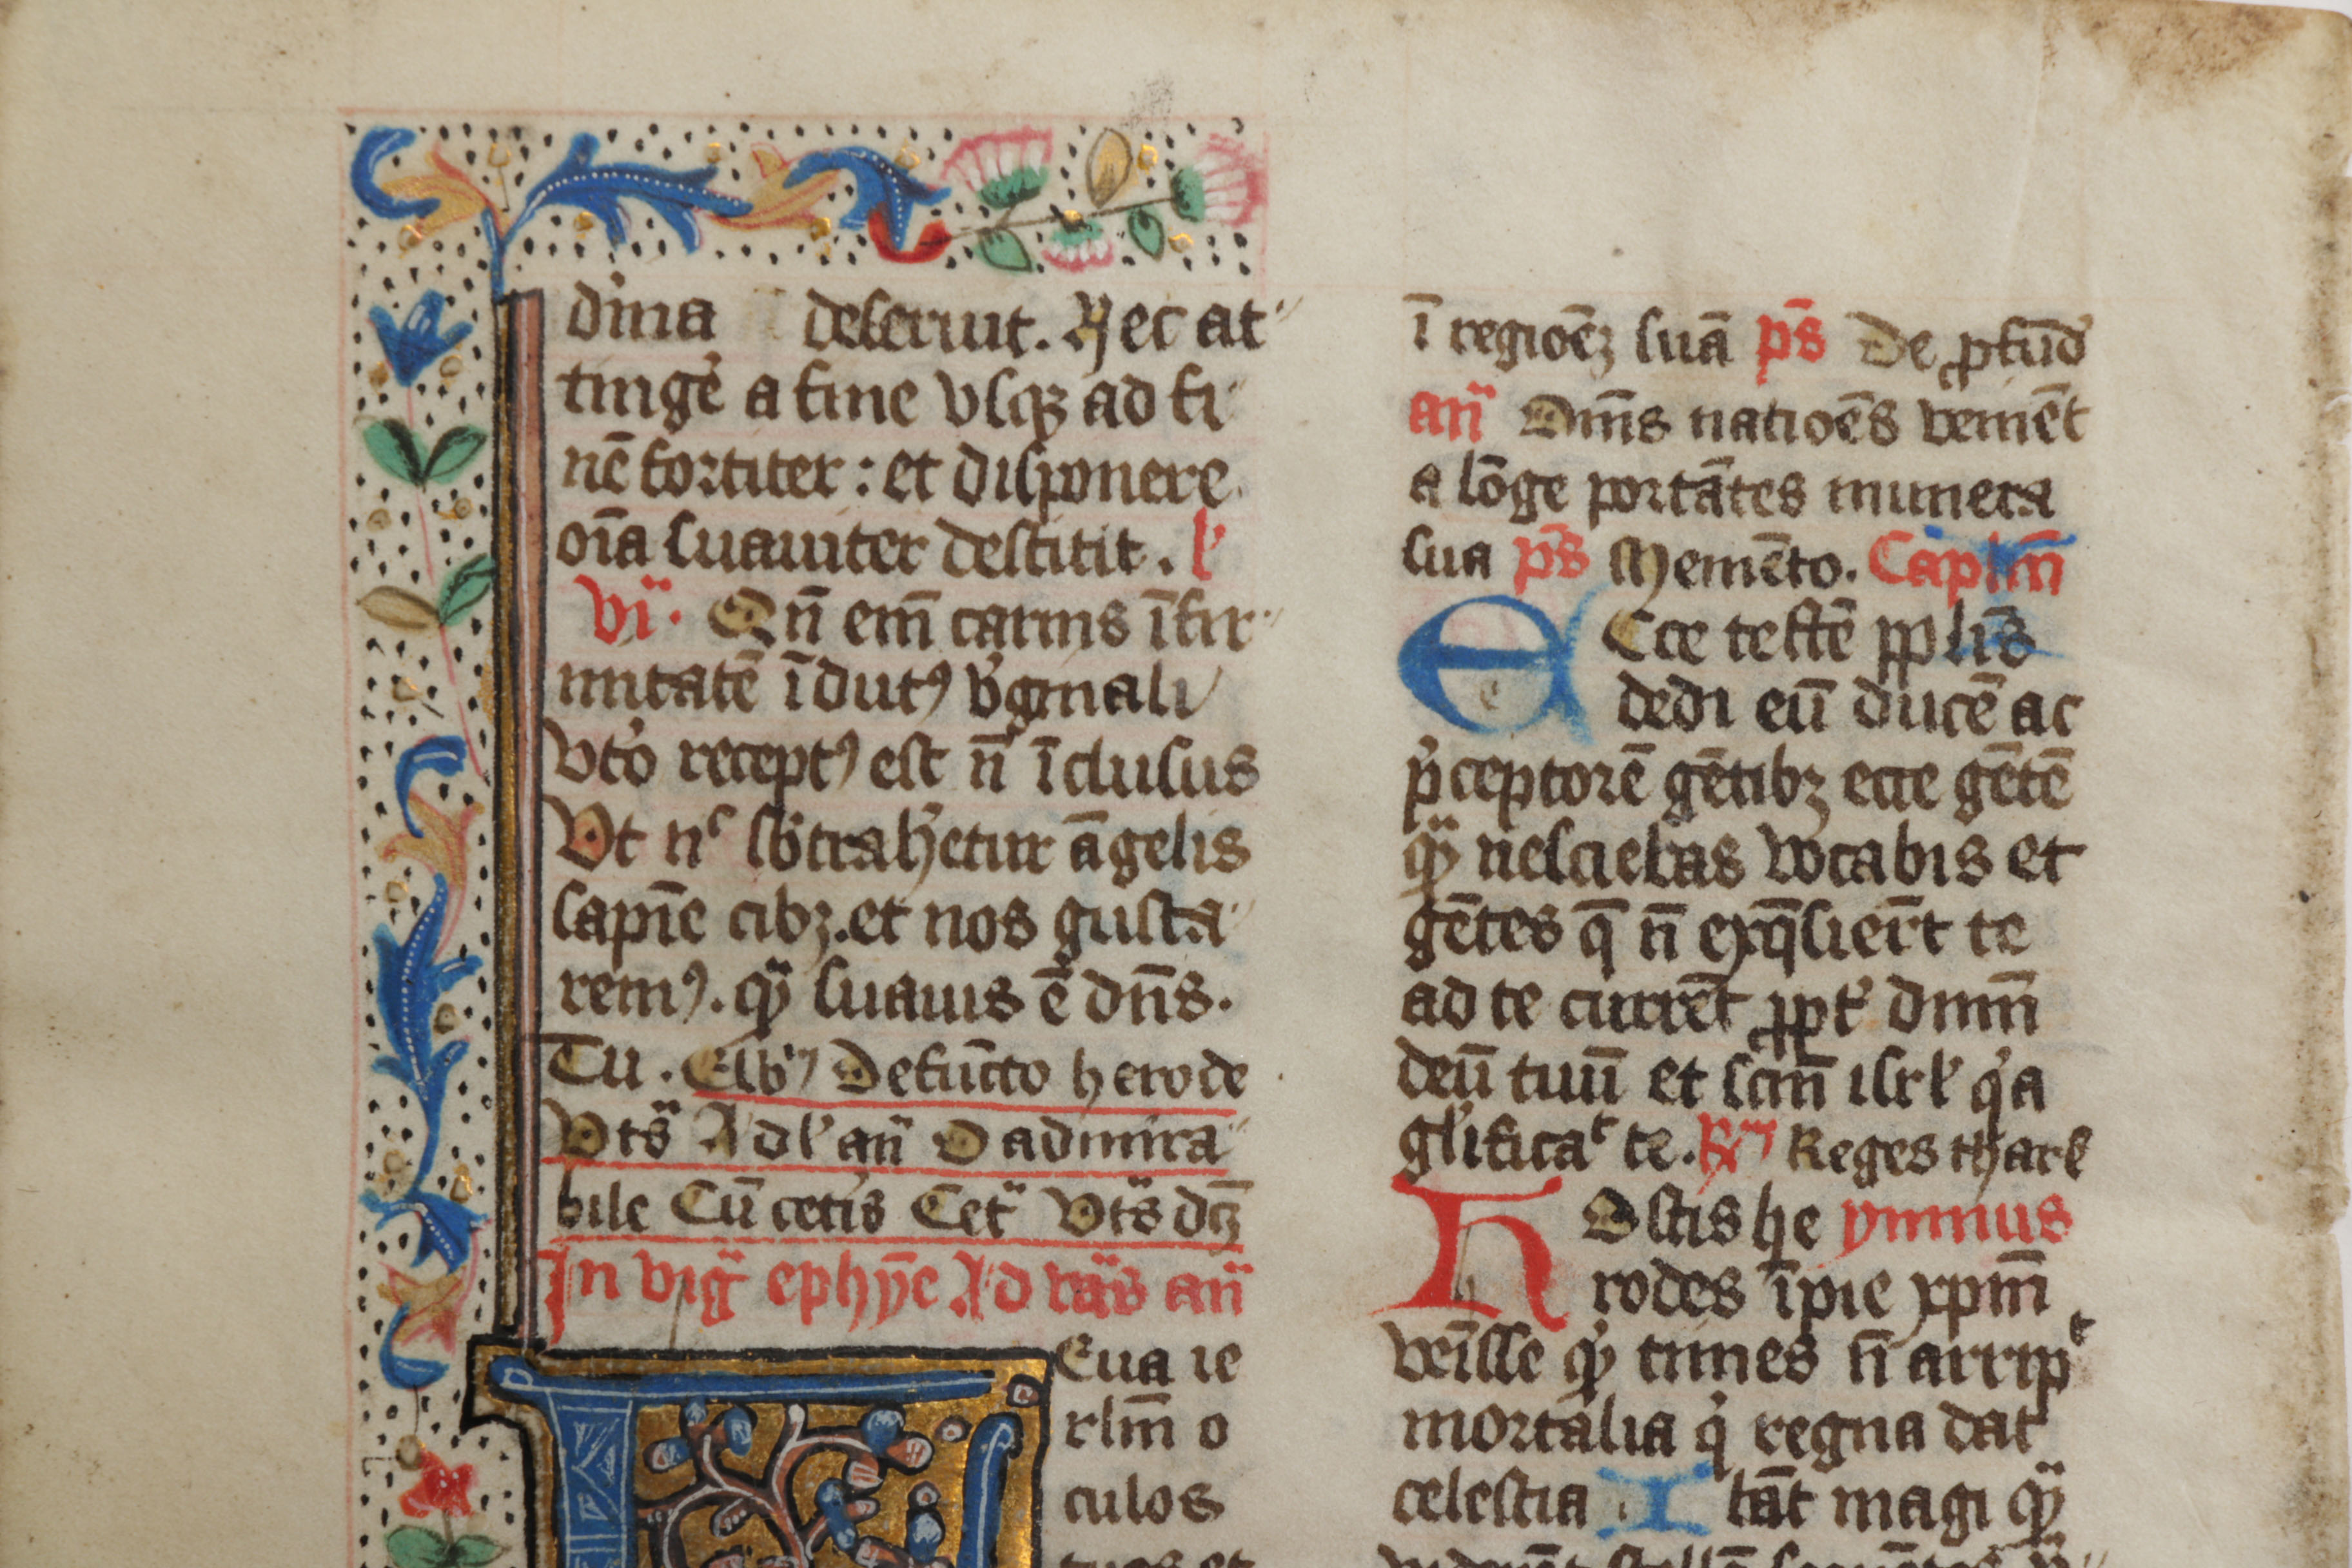 dīna deseruit. Nec at
tingē a fine vsqꝫ ad fi
nē fortiter : et disponere
oīa suauiter destitit. l'
vi. Qn̄ em̄ carnis īfir
mitatē īdutꝰ v'ginali
vt'o receptꝰ est n̄ īclusus
Vt nᶜ sb'trah'etur āgelis
sapīe cibꝫ. et nos gusta
remꝰ. qꝫ suauis ē dn̄s.
Tu. Defūcto herode
Vts̄ Ad l' an̄ O admira
bile Cū cetis Cet' Vts̄ dq̄ꝫ
In vig' ephȳe Ad va̅s an̄
Eua ie
rlm̄ o
culos
tuos et
ī regiōēꝫ suā ps̄ De ꝓfūd'
an̄ Om̄s natiōēs veniēt
a lōge portātes munera
sua ps̄ Memēto. Caplm̄
ECce testē pplīs
dedi eū ducē ac
p'ceptorē gētibꝫ ecce gētē
qꝫ nesciebas vocabis et
gētes q̄ n̄ exq̄sier̄t te
ad te currēt ꝓpt' dnm̄
deū tuū et scm̄ isrl' q'a
gl'ificaᵗ te. R̄ Reges thars
HOstis he ymnus
rodes īpie xpm̄
venīsse qꝫ times n̄ arripᵗ
mortalia q' regna dat
celestia Ibāt magi qꝫ